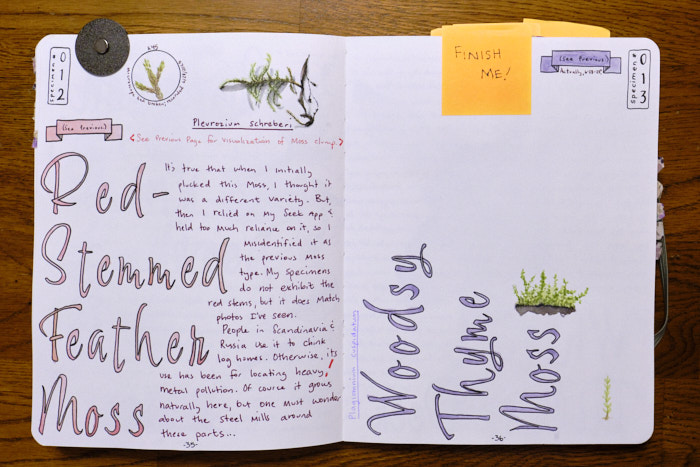 specimen #
012
x45
(See Previous)
Pleurozium schreberi
<See Previous Page for Visualization of Moss clump.>
Red-
Stemmed
Feather
Moss
It's true that when I initially
plucked this Moss, I thought it
was a different variety. But,
then I relied on my Seek App &
held too much reliance on it, so I
misidentified it as
the previous moss
type. My specimens
do not exhibit the
red stems, but it does match
photos I've seen.
People in Scandinavia &
Russia use it to chink
log homes. Otherwise, its
use has been for locating heavy
metal pollution. Of course it grows
naturally here, but one must wonder
about the Steel Mills around
these parts...
-35-
FINISH
ME!
(See Previous)
specimen #
013
Plagiomnium cuspidatum
Woodsy
Thyme
Moss
-36-